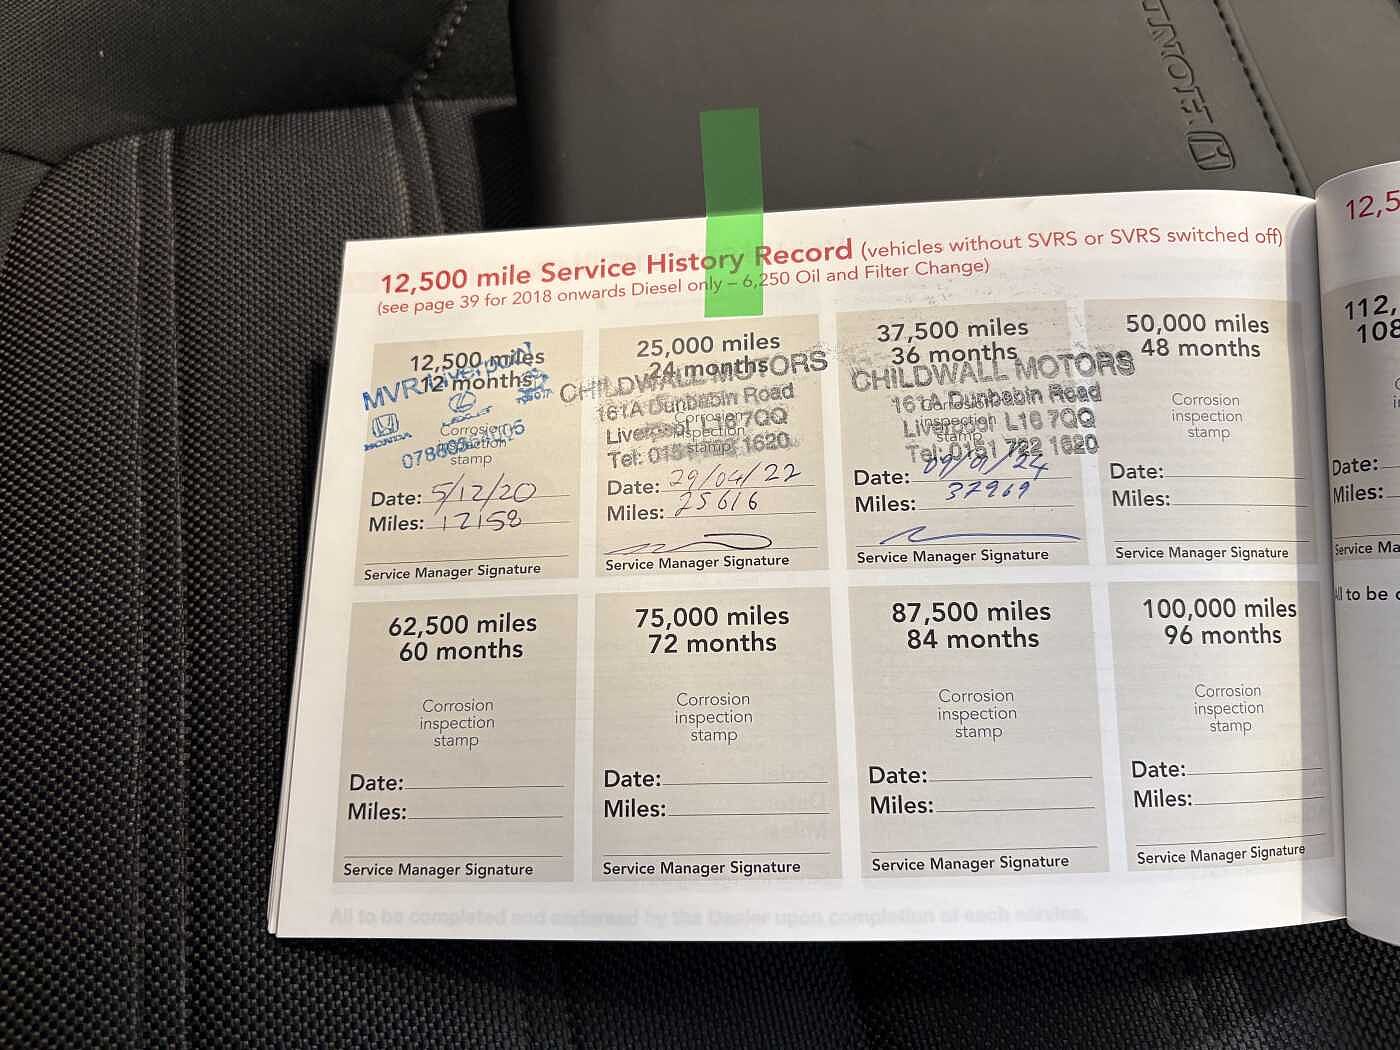 HONDA
12,500 mile Service History Record (vehicles without SVRS or SVRS switched off)
(see page 39 for 2018 onwards Diesel only – 6,250 Oil and Filter Change)
12,500 miles
12 months
MVR Liverpool
HONDA
Corrosion
inspection
stamp
Date: 5/12/20
Miles: 12158
Service Manager Signature
25,000 miles
24 months
CHILDWALL MOTORS
161A Dunbabin Road
Liverpool L16 7QQ
Tel: 0151 722 1620
Corrosion
inspection
stamp
Date: 29/04/22
Miles: 25616
Service Manager Signature
37,500 miles
36 months
CHILDWALL MOTORS
161A Dunbabin Road
Liverpool L16 7QQ
Tel: 0151 722 1620
Corrosion
inspection
stamp
Date: 09/01/24
Miles: 37969
Service Manager Signature
50,000 miles
48 months
Corrosion
inspection
stamp
Date:
Miles:
Service Manager Signature
62,500 miles
60 months
Corrosion
inspection
stamp
Date:
Miles:
Service Manager Signature
75,000 miles
72 months
Corrosion
inspection
stamp
Date:
Miles:
Service Manager Signature
87,500 miles
84 months
Corrosion
inspection
stamp
Date:
Miles:
Service Manager Signature
100,000 miles
96 months
Corrosion
inspection
stamp
Date:
Miles:
Service Manager Signature
All to be completed and endorsed by the Dealer upon completion of each service.
12,5
112,
108
Date:
Miles:
Service Ma
All to be c